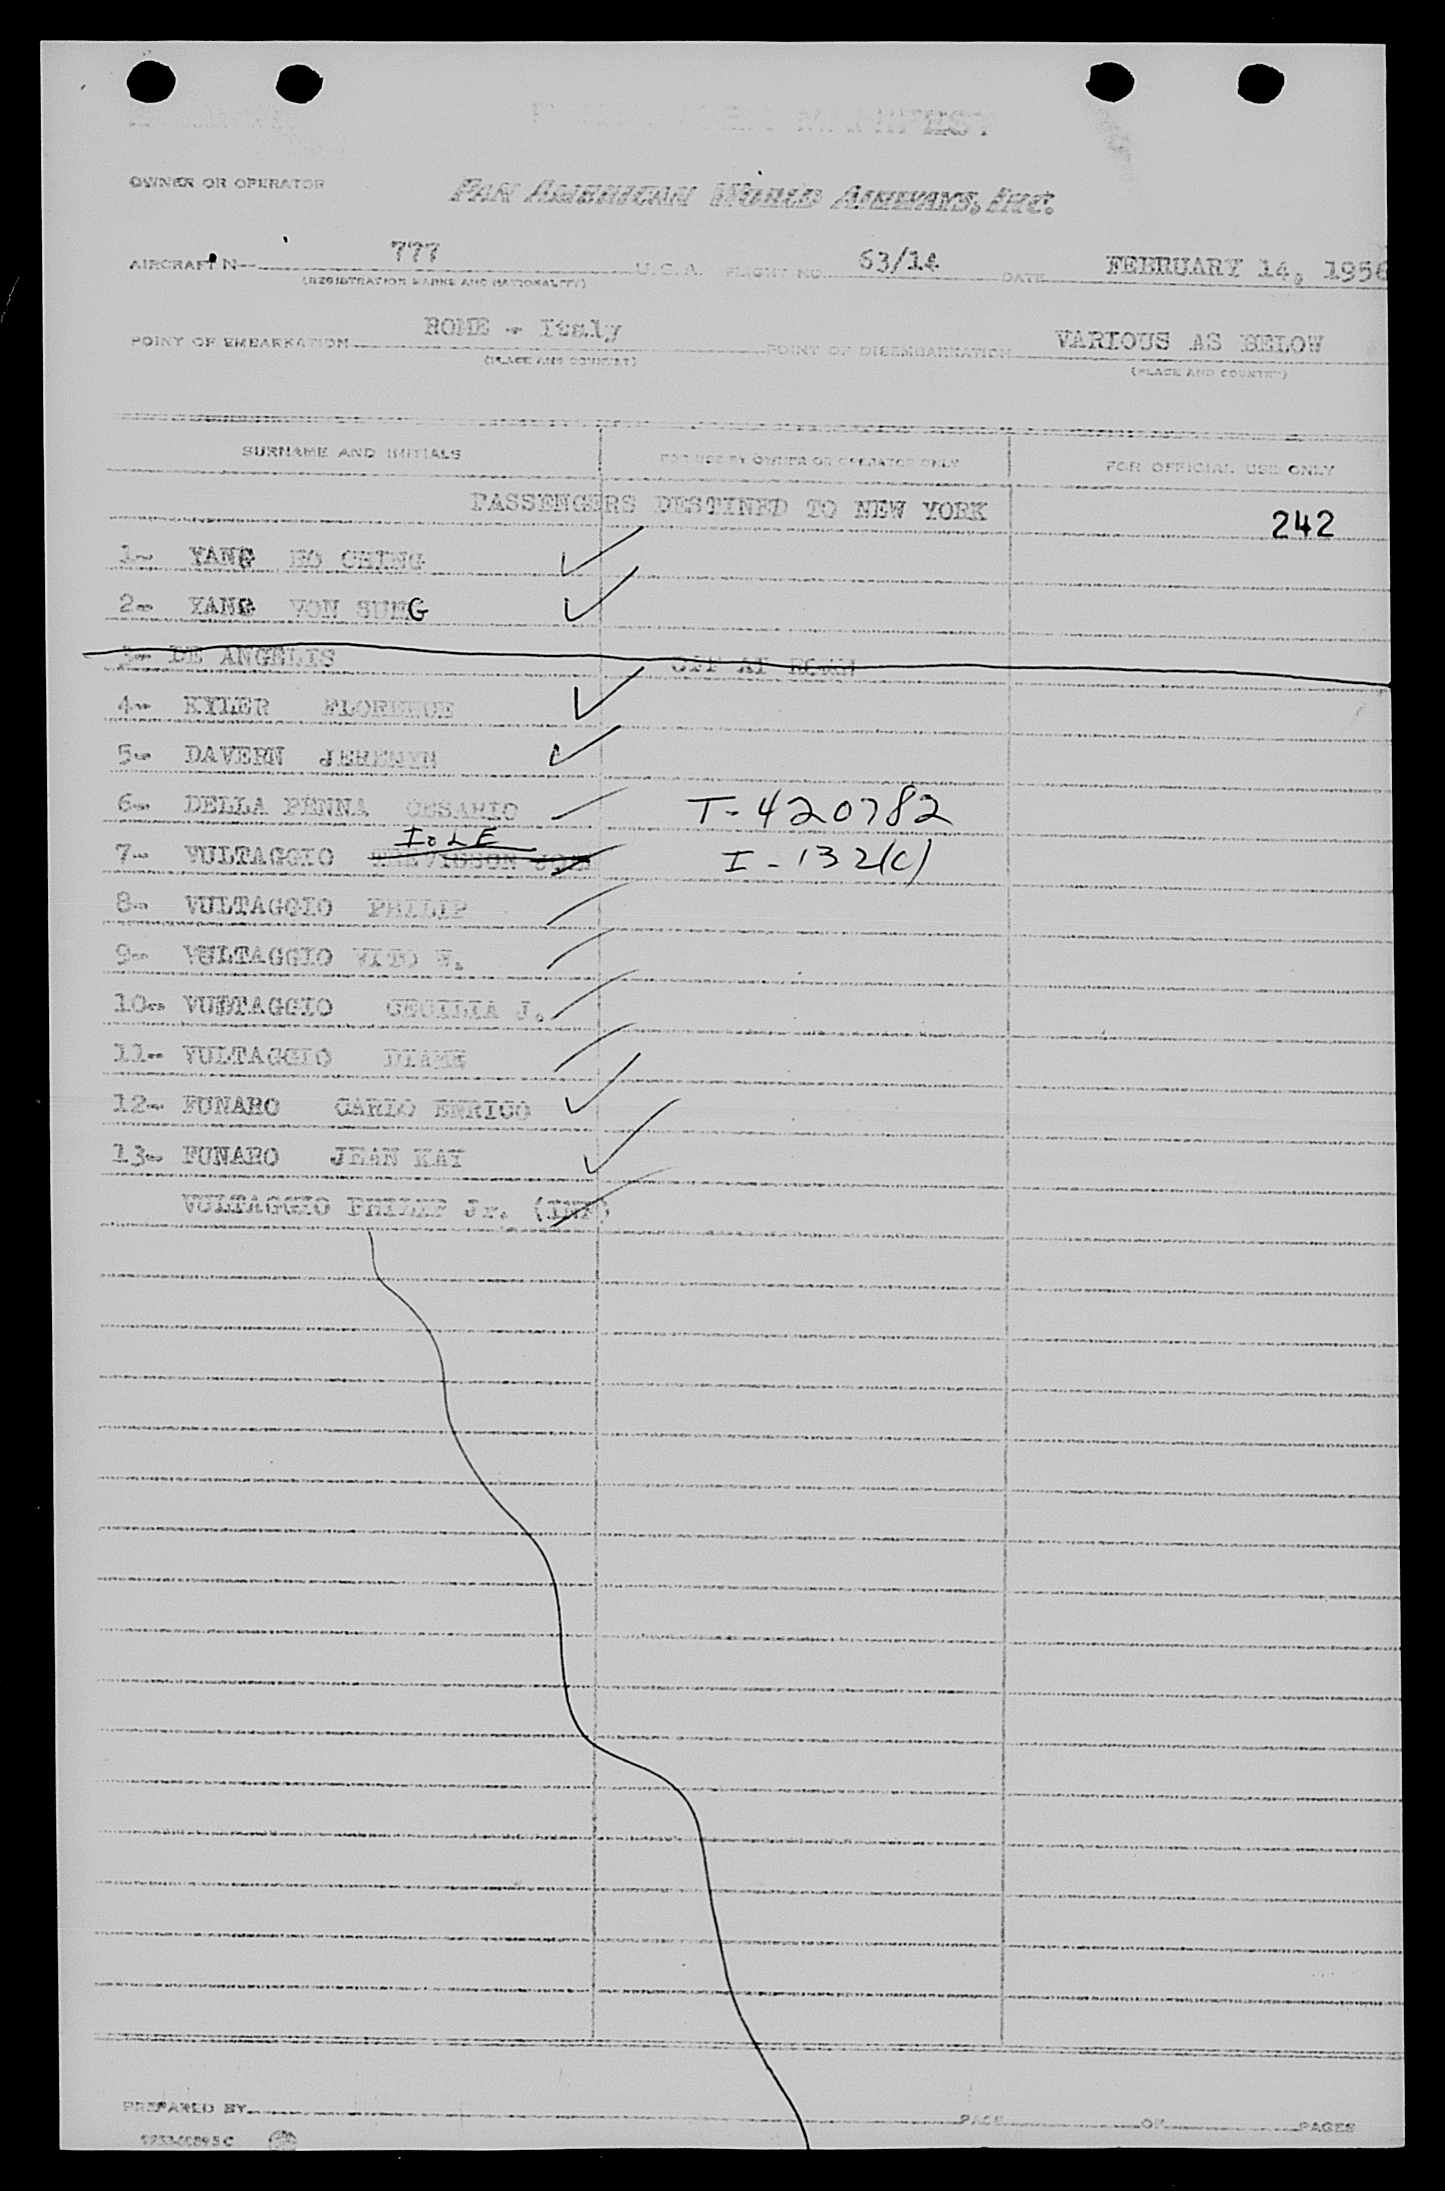 MANIFEST
OWNER OR OPERATOR PAN AMERICAN WORLD AIRWAYS, INC.
AIRCRAFT N-- 777 U.S.A. FLIGHT NO. 63/14 DATE FEBRUARY 14, 1956
(REGISTRATION MARKS AND NATIONALITY)
POINT OF EMBARKATION ROME - Italy POINT OF DISEMBARKATION VARIOUS AS BELOW
(PLACE AND COUNTRY) (PLACE AND COUNTRY)
SURNAME AND INITIALS FOR USE BY OWNER OR OPERATOR ONLY FOR OFFICIAL USE ONLY
PASSENGERS DESTINED TO NEW YORK 242
1- YANG HO CHING
2- YANG VON SUNG
3- DE ANGELIS OFF AT
4- KYLER FLORENCE
5- DAVERN JEREMYN
6- DELLA PENNA CESARIO T-420782
IOLE
7- VULTAGGIO I-132(C)
8- VULTAGGIO PHILIP
9- VULTAGGIO VITO W.
10- VULTAGGIO CECILIA J.
11- VULTAGGIO DIANE
12- FUNARO CARLO ENRICO
13- FUNARO JEAN KAY
VULTAGGIO PHILIP Jr. (INF)
PREPARED BY PAGE OF PAGES